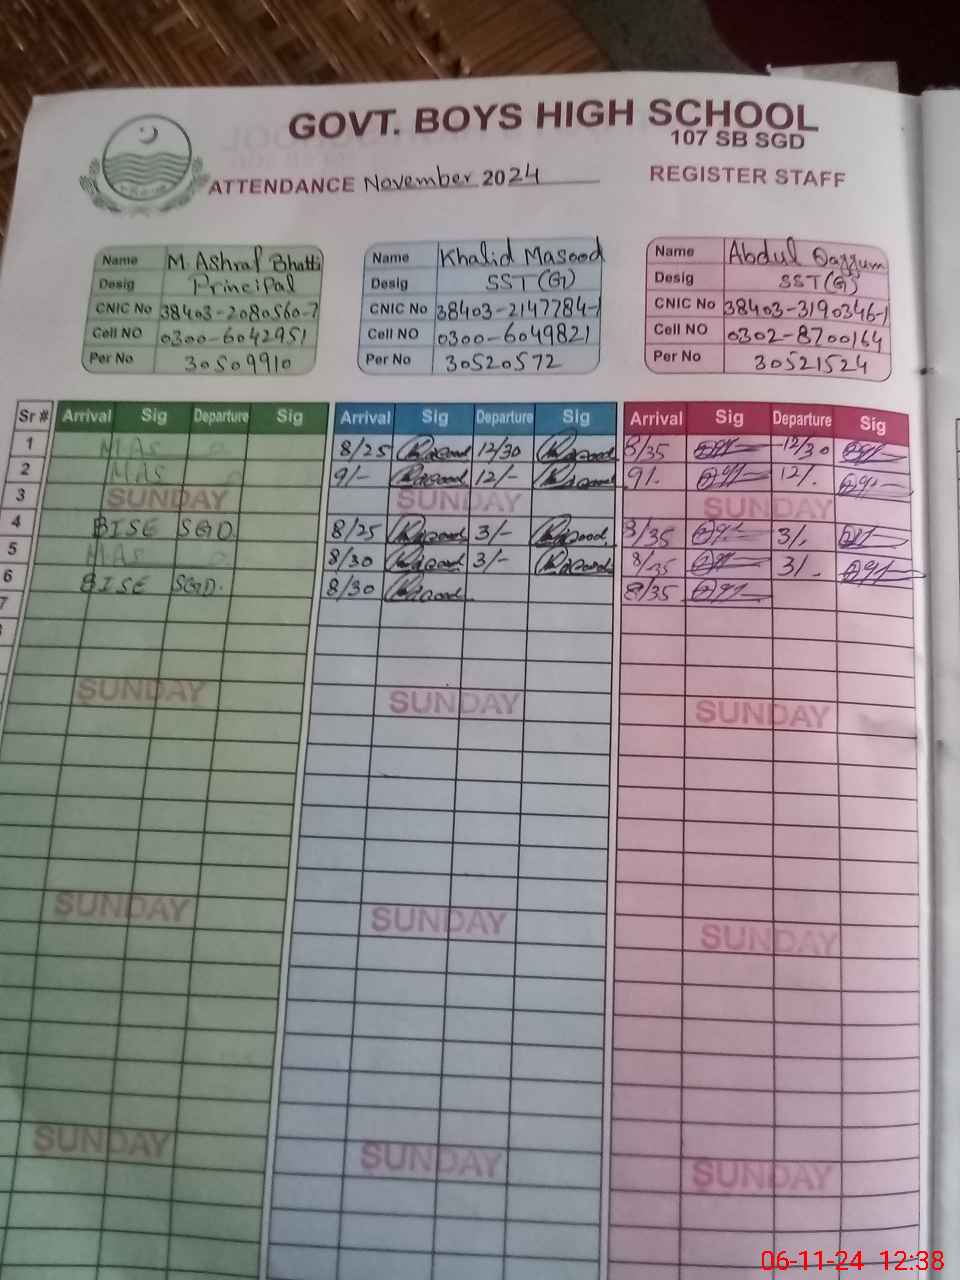 GOVT. BOYS HIGH SCHOOL
107 SB SGD
ATTENDANCE November 2024 REGISTER STAFF
Name M. Ashraf Bhatti Name Khalid Masood Name Abdul Qayyum
Desig Principal Desig SST(G) Desig SST(G)
CNIC No 38403-2080560-7 CNIC No 38403-2147784-1 CNIC No 38403-3190346-1
Cell NO 0300-6042951 Cell NO 0300-6049821 Cell NO 0302-8700164
Per No 30509910 Per No 30520572 Per No 30521524
Sr # Arrival Sig Departure Sig Arrival Sig Departure Sig Arrival Sig Departure Sig
1 MAS 8/25 12/30 8/35 12/30
2 MAS 9/- 12/- 9/- 12/-
3 SUNDAY SUNDAY SUNDAY
4 BISE SGD 8/25 3/- 8/35 3/-
5 MAS 8/30 3/- 8/35 3/-
6 BISE SGD. 8/30 8/35
7
SUNDAY SUNDAY SUNDAY
SUNDAY SUNDAY SUNDAY
SUNDAY SUNDAY SUNDAY
06-11-24 12:38